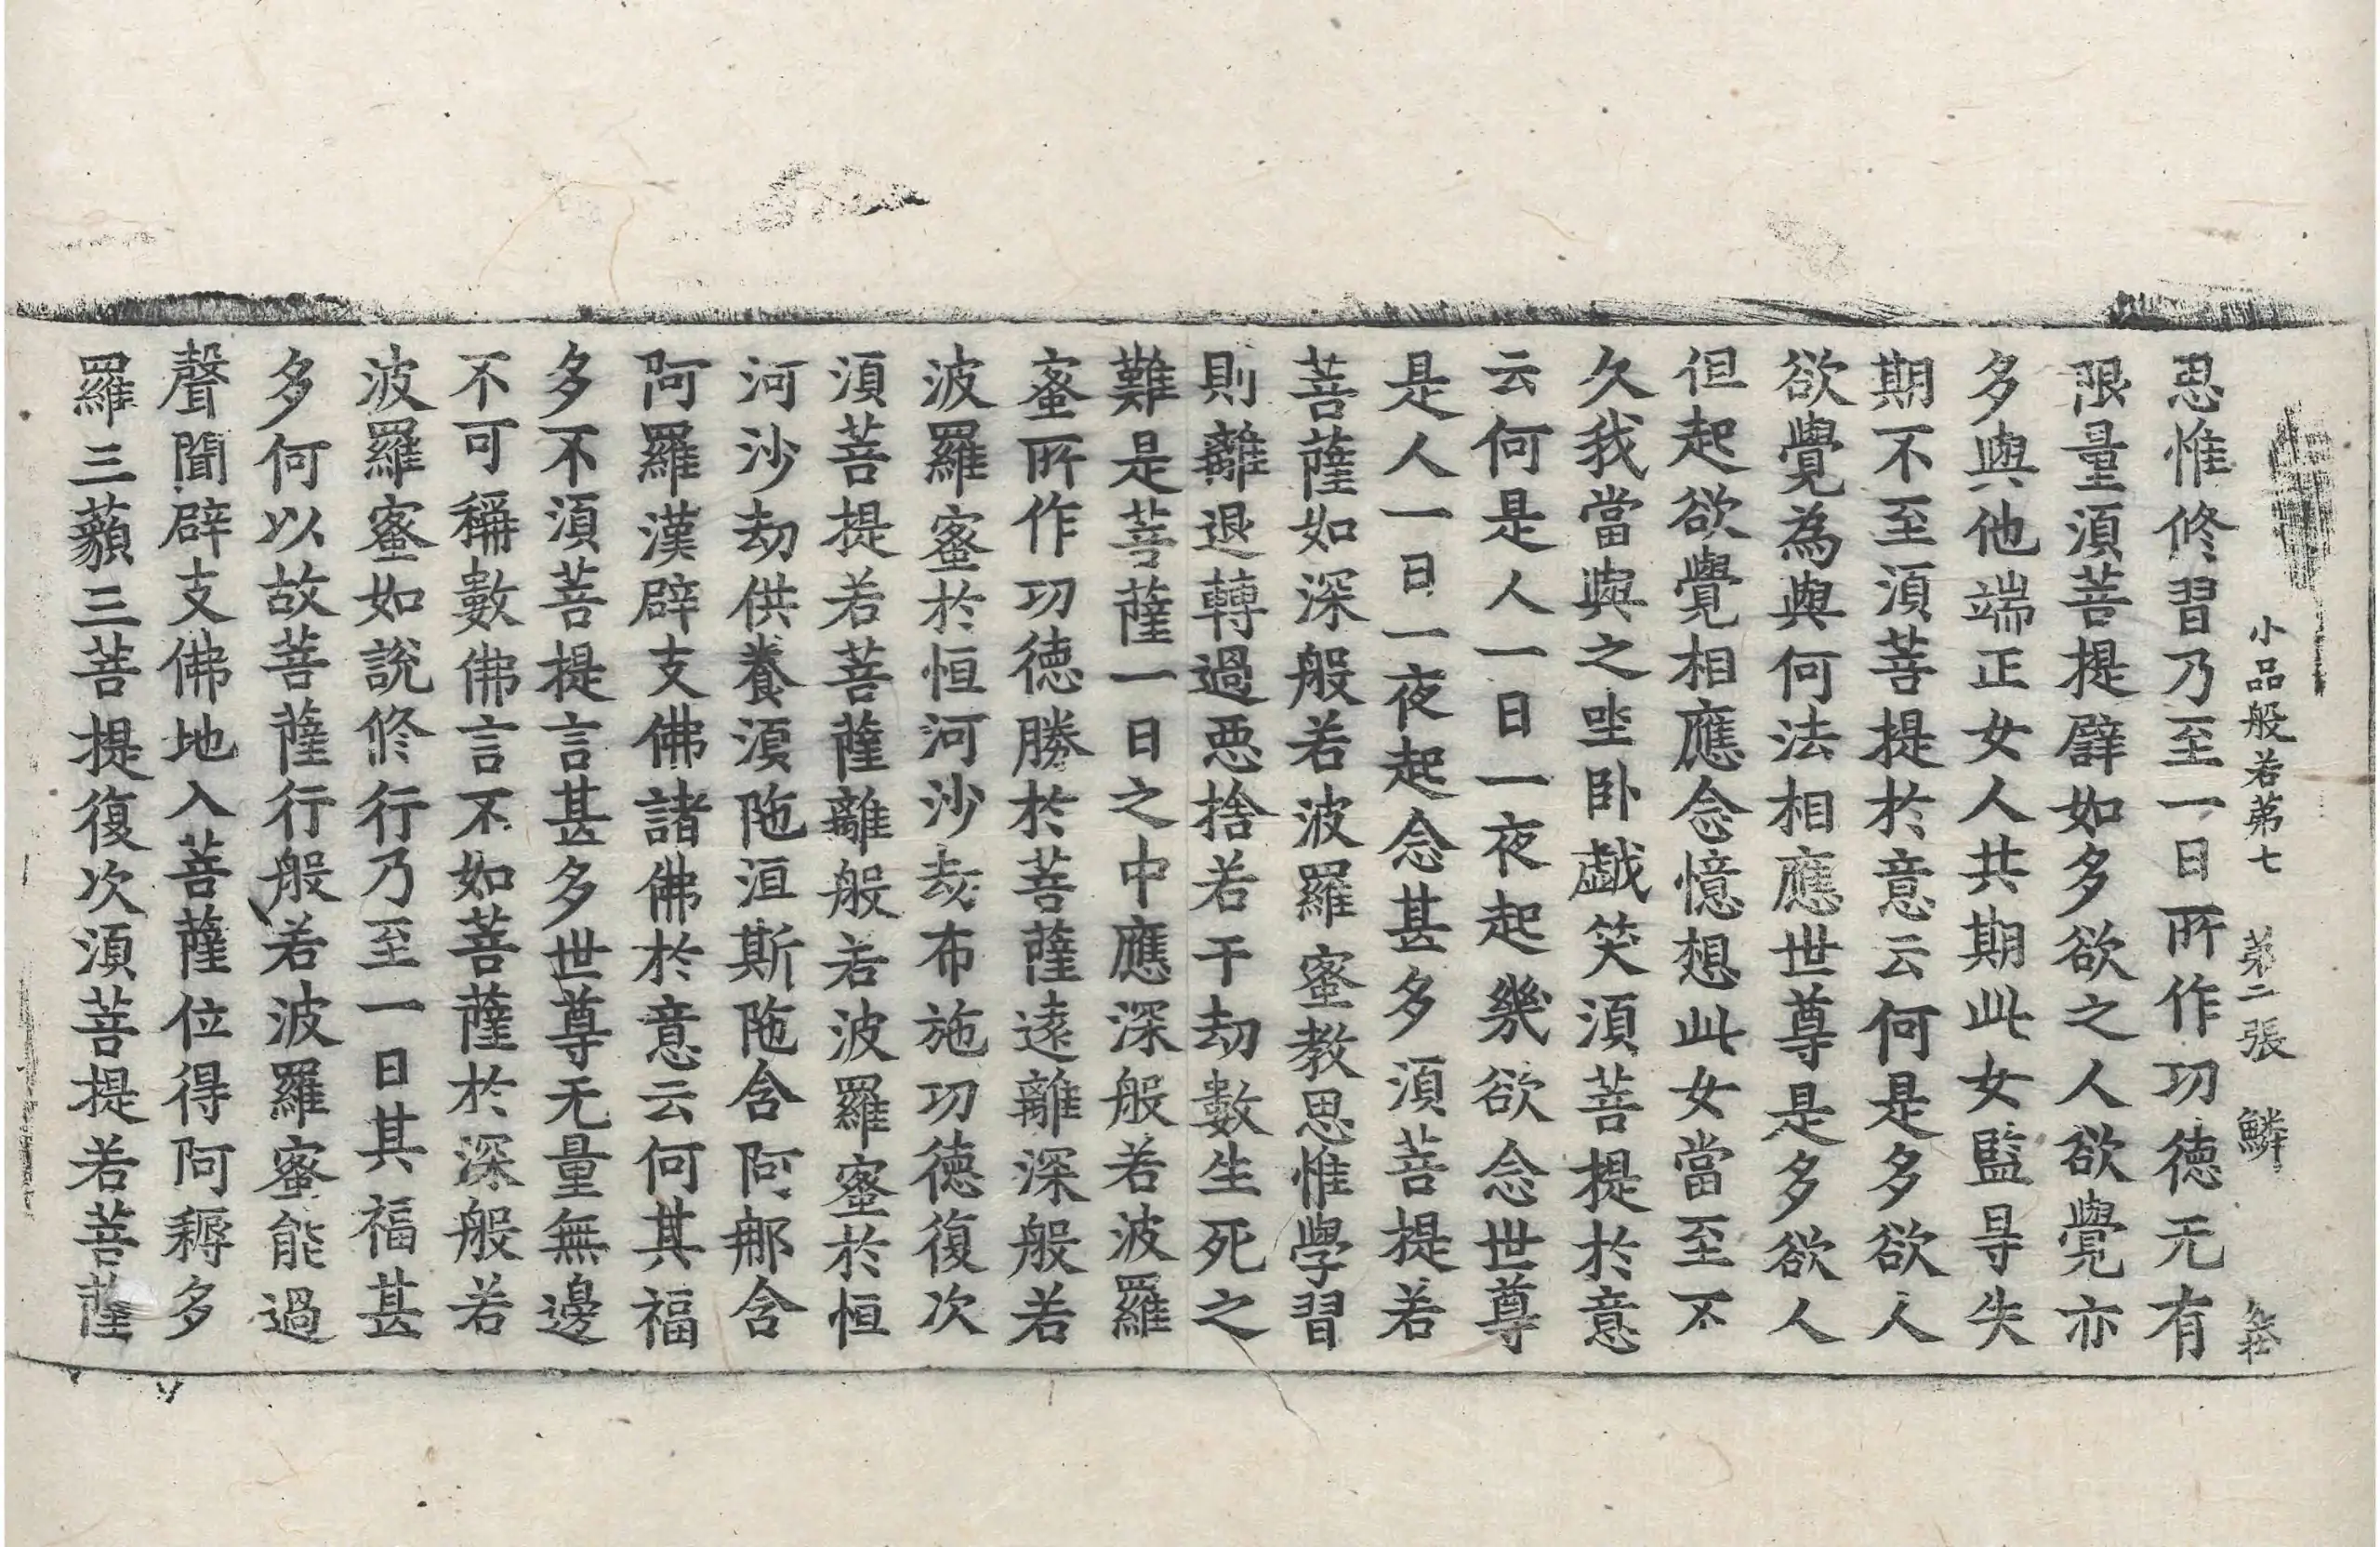 小品般若第七 第二張 鱗
思惟修習乃至一日所作功德无有
限量須菩提譬如多欲之人欲覺亦
多與他端正女人共期此女監㝵失
期不至須菩提於意云何是多欲人
欲覺為與何法相應世尊是多欲人
但起欲覺相應念憶想此女當至不
久我當與之坐卧戱笑須菩提於意
云何是人一日一夜起幾欲念世尊
是人一日一夜起念甚多須菩提若
菩薩如深般若波羅蜜教思惟學習
則離退轉過惡捨若干劫數生死之
難是菩薩一日之中應深般若波羅
蜜所作功德勝於菩薩遠離深般若
波羅蜜於恒河沙劫布施功德復次
須菩提若菩薩離般若波羅蜜於恒
河沙劫供養須陁洹斯陁含阿那含
阿羅漢辟支佛諸佛於意云何其福
多不須菩提言甚多世尊无量無邊
不可稱數佛言不如菩薩於深般若
波羅蜜如說修行乃至一日其福甚
多何以故菩薩行般若波羅蜜能過
聲聞辟支佛地入菩薩位得阿耨多
羅三藐三菩提復次須菩提若菩薩